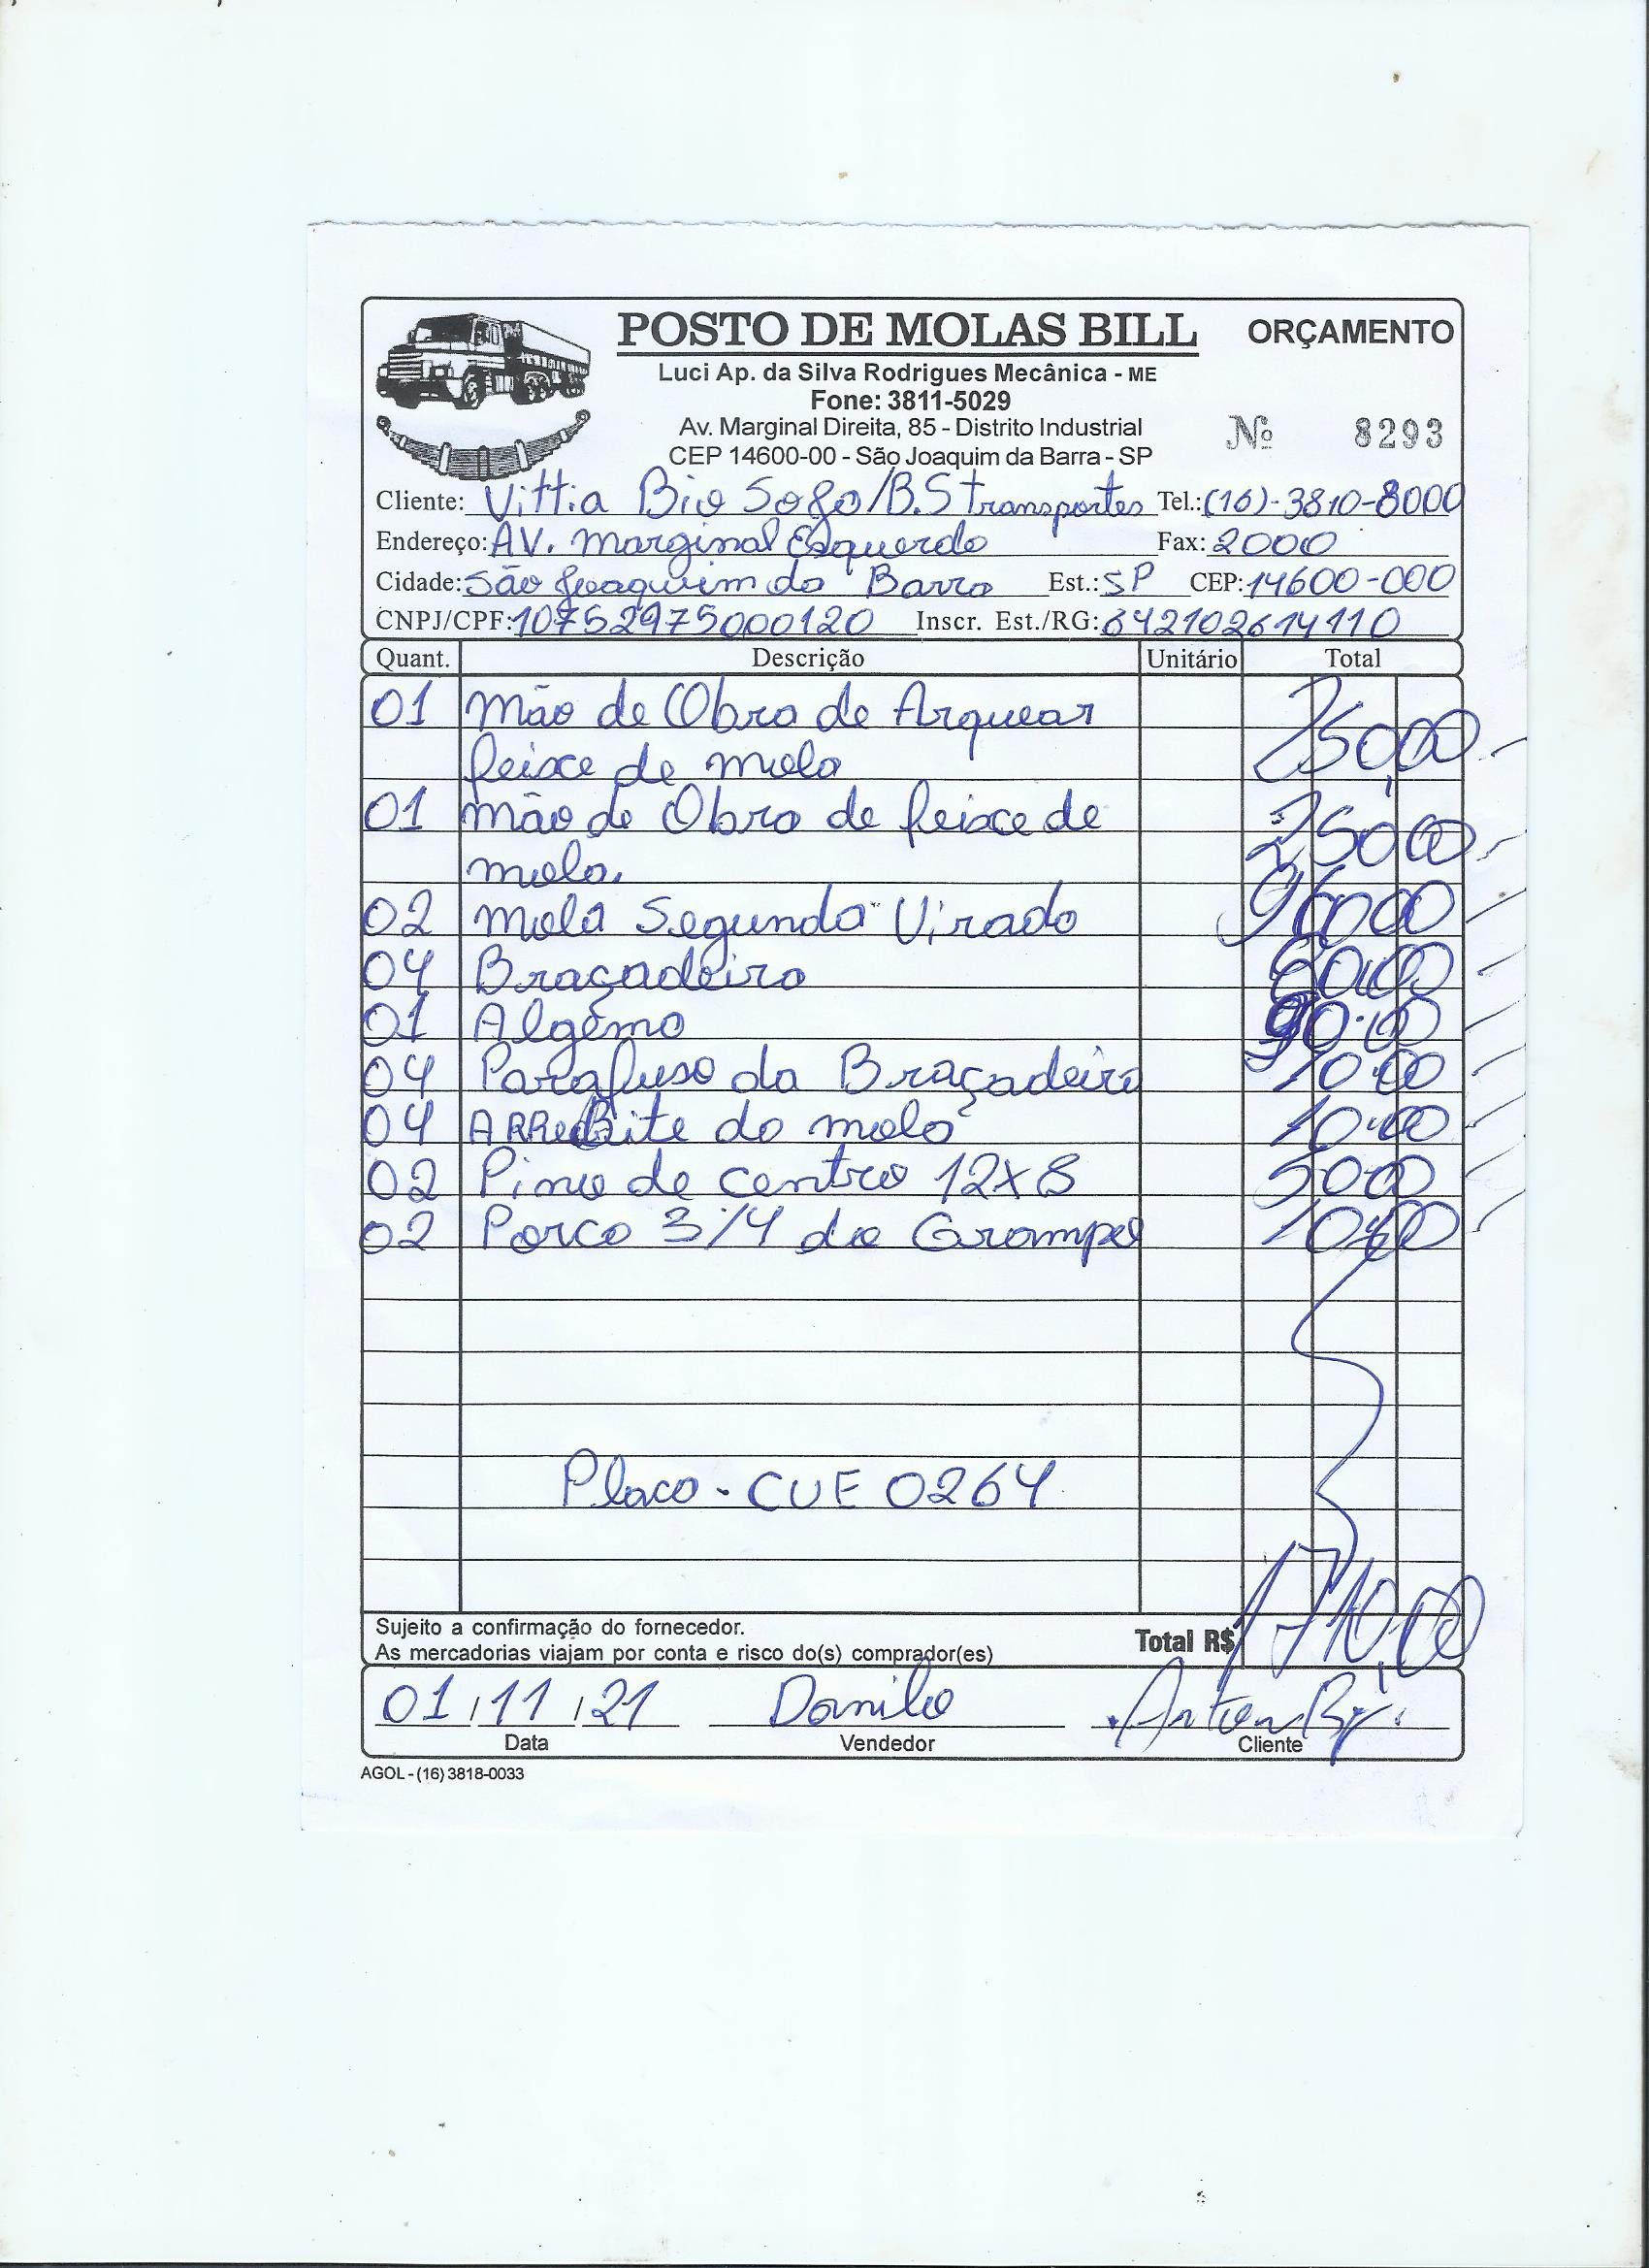 POSTO DE MOLAS BILL ORÇAMENTO
Luci Ap. da Silva Rodrigues Mecânica - ME
Fone: 3811-5029
Av. Marginal Direita, 85 - Distrito Industrial
Nº 8293
CEP 14600-00 - São Joaquim da Barra - SP
Cliente: Vittia Bio Sogo/B.S transportes Tel.: (16)-3810-8000
Endereço: AV. Marginal Esquerda Fax: 2000
Cidade: São Joaquim da Barra Est.: SP CEP: 14600-000
CNPJ/CPF: 10752975000120 Inscr. Est./RG: 642102614110
Quant. Descrição Unitário Total
01 Mão de Obra de Arquear
feixe de mola 250,00
01 Mão de Obra de feixe de
mola. 250,00
02 Mola Segunda Virada 960,00
04 Braçadeira 80,00
01 Algema 90,00
04 Parafuso da Braçadeira 10,00
04 ARRebite da mola 10,00
02 Pino de centro 12x8 50,00
02 Porca 3/4 do Grampo 10,00
Placa - CUE 0264
Sujeito a confirmação do fornecedor.
As mercadorias viajam por conta e risco do(s) comprador(es) Total R$ 1710,00
01/11/21 Danilo
Data Vendedor Cliente
AGOL - (16) 3818-0033